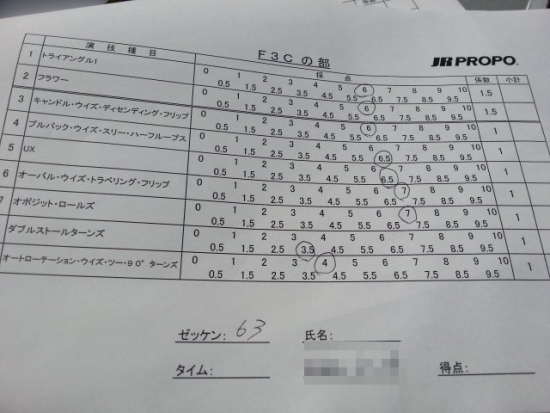 F3Cの部
JR PROPO
演技種目 採点 係数 小計
1 トライアングル1 0 0.5 1 1.5 2 2.5 3 3.5 4 4.5 5 5.5 6 6.5 7 7.5 8 8.5 9 9.5 10 1.5
2 フラワー 0 0.5 1 1.5 2 2.5 3 3.5 4 4.5 5 5.5 6 6.5 7 7.5 8 8.5 9 9.5 10 1.5
3 キャンドル・ウイズ・ディセンディング・フリップ 0 0.5 1 1.5 2 2.5 3 3.5 4 4.5 5 5.5 6 6.5 7 7.5 8 8.5 9 9.5 10 1
4 プルバック・ウイズ・スリー・ハーフループス 0 0.5 1 1.5 2 2.5 3 3.5 4 4.5 5 5.5 6 6.5 7 7.5 8 8.5 9 9.5 10 1
5 UX 0 0.5 1 1.5 2 2.5 3 3.5 4 4.5 5 5.5 6 6.5 7 7.5 8 8.5 9 9.5 10 1
6 オーバル・ウイズ・トラベリング・フリップ 0 0.5 1 1.5 2 2.5 3 3.5 4 4.5 5 5.5 6 6.5 7 7.5 8 8.5 9 9.5 10 1
7 オポジット・ロールズ 0 0.5 1 1.5 2 2.5 3 3.5 4 4.5 5 5.5 6 6.5 7 7.5 8 8.5 9 9.5 10 1
ダブルストールターンズ 0 0.5 1 1.5 2 2.5 3 3.5 4 4.5 5 5.5 6 6.5 7 7.5 8 8.5 9 9.5 10 1
オートローテーション・ウイズ・ツー・90°ターンズ 0 0.5 1 1.5 2 2.5 3 3.5 4 4.5 5 5.5 6 6.5 7 7.5 8 8.5 9 9.5 10 1
ゼッケン: 63 氏名:
タイム: 得点: